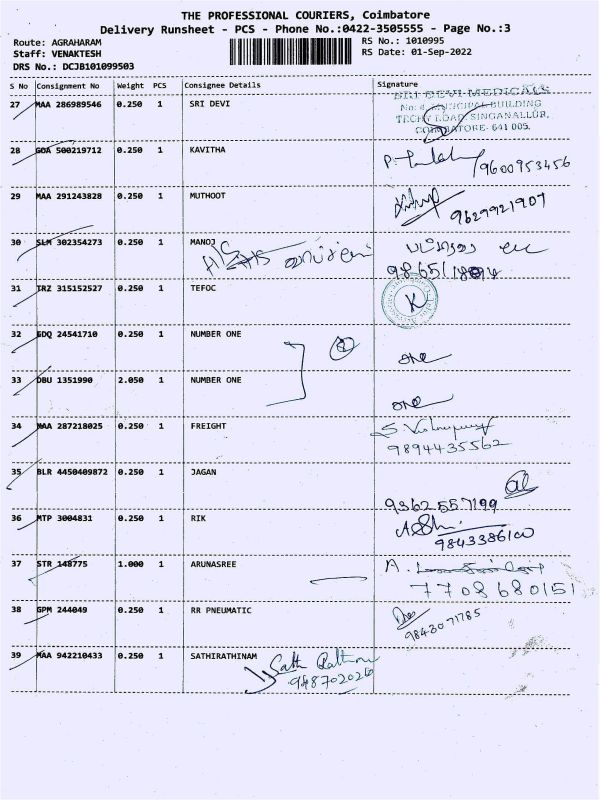 THE PROFESSIONAL COURIERS, Coimbatore
Delivery Runsheet - PCS - Phone No.:0422-3505555 - Page No.:3
Route: AGRAHARAM
RS No.: 1010995
Staff: VENAKTESH
RS Date: 01-Sep-2022
DRS No.: DCJB101099503
S No Consignment No Weight PCS Consignee Details Signature
27 MAA 286989546 0.250 1 SRI DEVI
SRI DEVI MEDICALS
No: 8, MUNICIPAL BUILDING
TECHY ROAD, SINGANALLUR,
COIMBATORE- 641 005.
28 GOA 500219712 0.250 1 KAVITHA
9600953456
29 MAA 291243828 0.250 1 MUTHOOT
9629921907
30 SLM 302354273 0.250 1 MANOJ
31 TRZ 315152527 0.250 1 TEFOC
K
32 EDQ 24541710 0.250 1 NUMBER ONE
2
one
33 DBU 1351990 2.050 1 NUMBER ONE
one
34 MAA 287218025 0.250 1 FREIGHT
9894435562
35 BLR 4450409872 0.250 1 JAGAN
9362557199
36 MTP 3004831 0.250 1 RIK
9843386100
37 STR 148775 1.000 1 ARUNASREE
A.
7708680151
38 GPM 244049 0.250 1 RR PNEUMATIC
9843071785
39 MAA 942210433 0.250 1 SATHIRATHINAM
9487020260